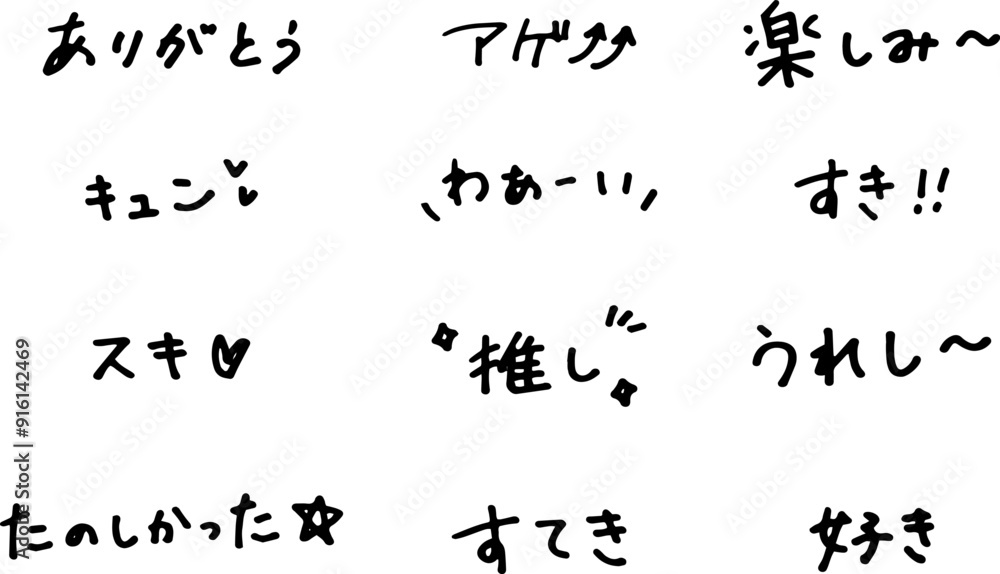 ありがとう アゲ⤴⤴ 楽しみ〜
キュン♥♥ \わぁーい/ すき!!
スキ♥ 推し うれし〜
たのしかった☆ すてき 好き
Adobe Stock | #916142469